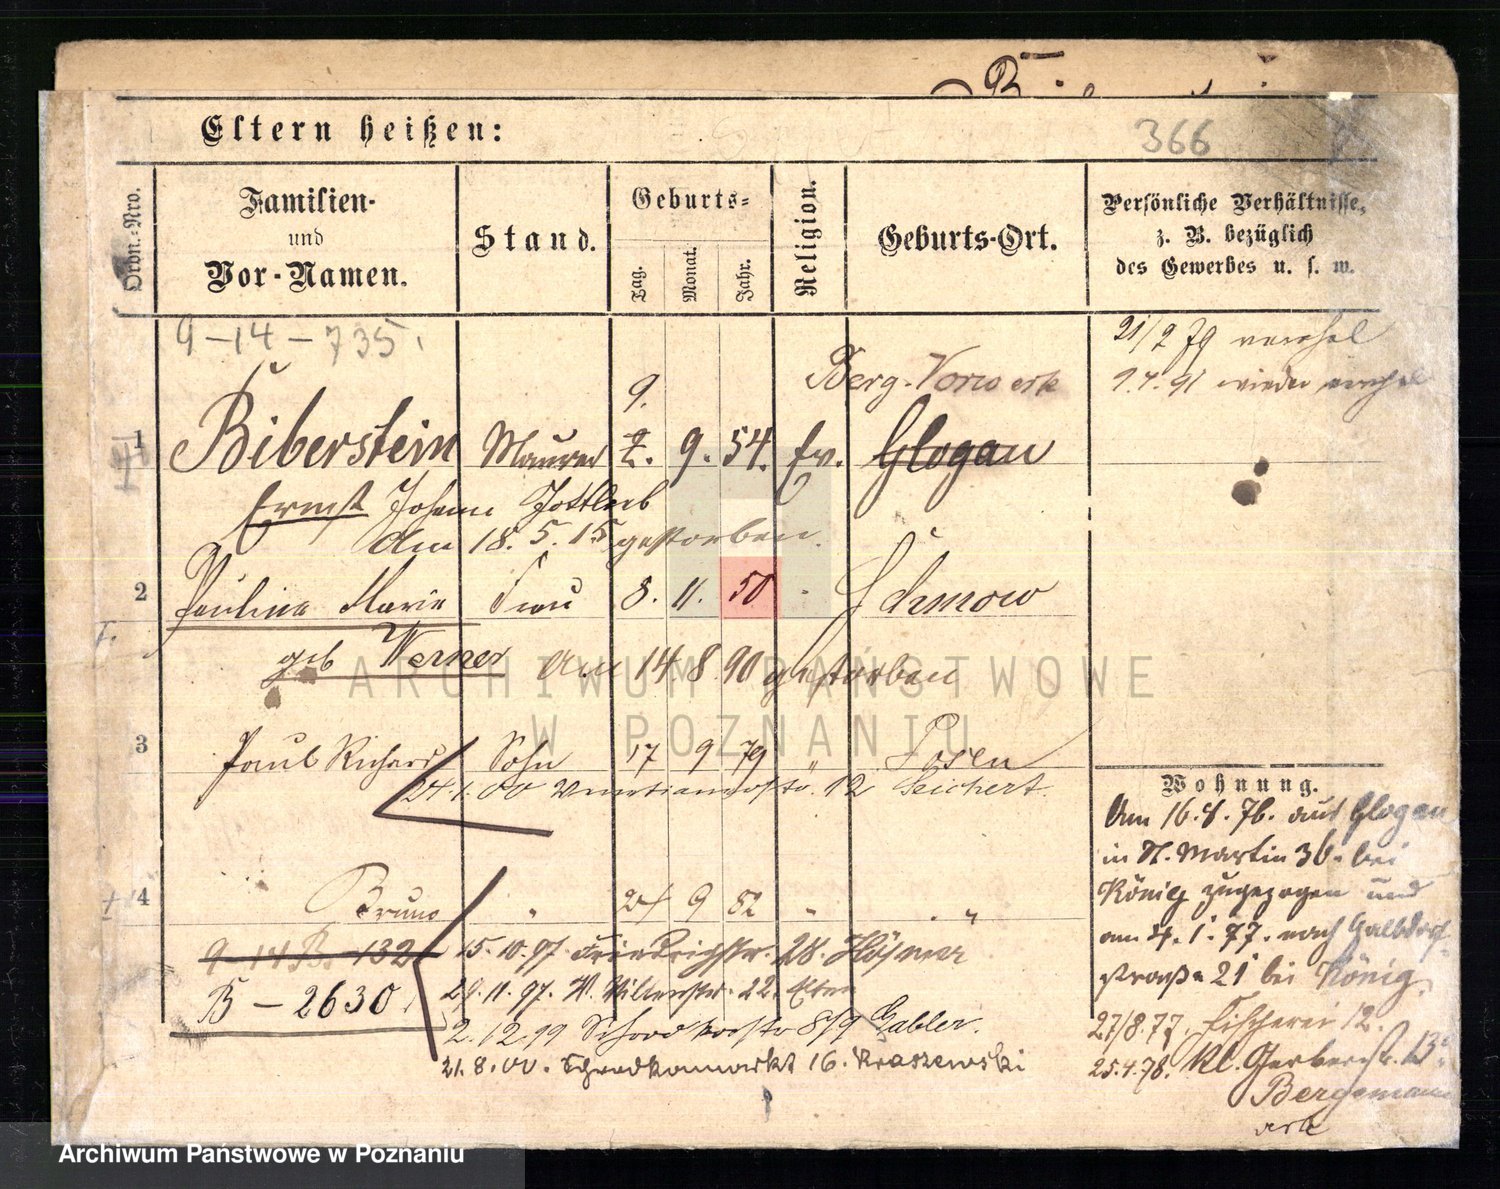 Eltern heißen:
366
Ordn.-Nro.
Familien-
und
Vor-Namen.
Stand.
Geburts-
Tag.
Monat.
Jahr.
Religion.
Geburts-Ort.
Persönliche Verhältnisse,
z. B. bezüglich
des Gewerbes u. s. w.
9-14-735.
21/2 79
1.4.91 wieder
9.
Berg-Vorwerk
1 Biberstein Maurer 2. 9. 54. Ev. Glogau
Ernst Johann Gottlieb
Am 18. 5. 15 gestorben.
2 Pauline Marie Frau 8. 11. 50
geb Werner Am 14. 8. 90 gestorben
ARCHIWUM PAŃSTWOWE
W POZNANIU
3 Paul Richard Sohn 17 9 79 " Posen
24.1.00 12 Seichert.
4 Bruno " 24 9 82 " "
9-14 B. 132 15.10.97. Friedrichstr. 28. Höfner
B-2630. 29.11.97. W. 22. Eltern
2.12.99 8/9 Gabler.
21.8.00. Schrodkamarkt 16. Kraszewski
Wohnung.
Am 16.4.76. aus Glogau
in St. Martin 36. bei
König zugezogen und
am 4.1.77. nach Halbdorf-
straße 21 bei König.
27/8.77. Fischerei 12.
25.4.78. Kl. Gerberstr. 13
Bergemann
Archiwum Państwowe w Poznaniu